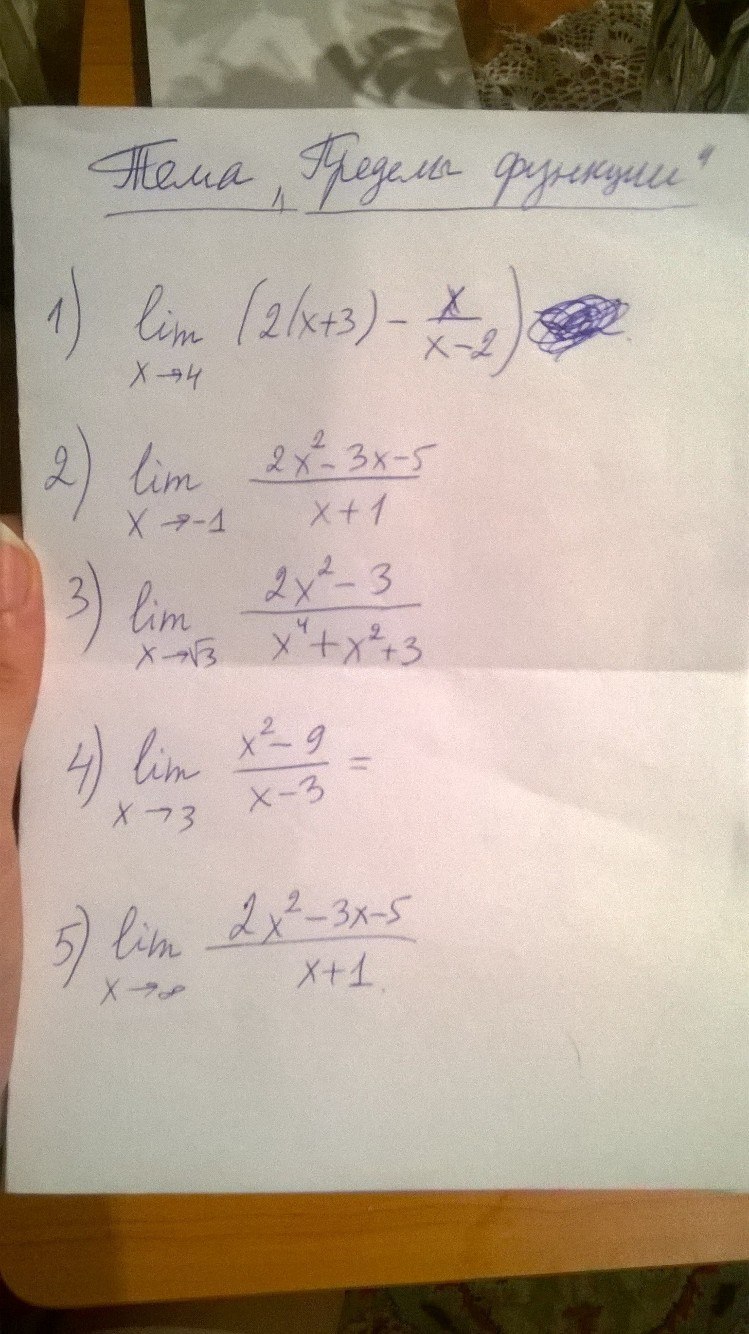 Тема „Пределы функции"
1) lim x→4 (2(x+3) - x/(x-2))
2) lim x→-1 (2x²-3x-5)/(x+1)
3) lim x→√3 (2x²-3)/(x⁴+x²+3)
4) lim x→3 (x²-9)/(x-3) =
5) lim x→∞ (2x²-3x-5)/(x+1).